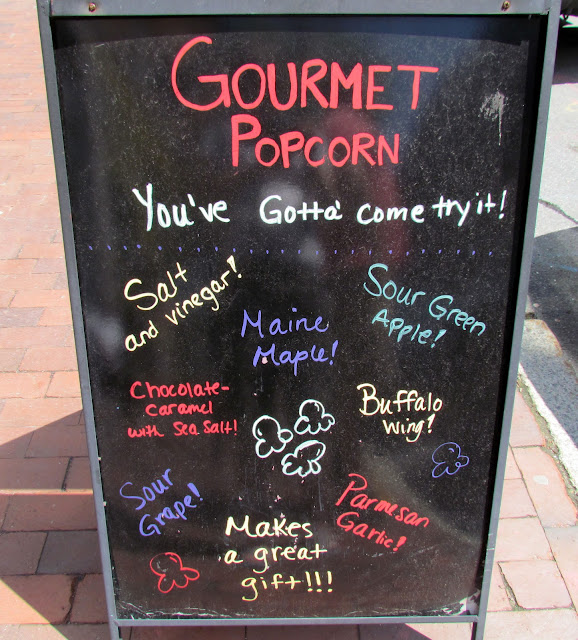 GOURMET
POPCORN
You've Gotta' come try it!
Salt
and vinegar!
Sour Green
Apple!
Maine
Maple!
Chocolate-
caramel
with Sea Salt!
Buffalo
wing!
Sour
Grape!
Parmesan
Garlic!
Makes
a great
gift!!!